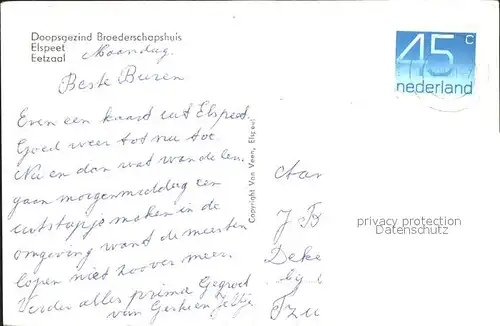 Doopsgezind Broederschapshuis
Elspeet
Eetzaal
Maandag.
Beste Buren
Even een kaart uit Elspeet.
Goed weer tot nu toe.
Nu en dan wat wandelen.
gaan morgenmiddag een
uitstapje maken in de
omgeving want de meesten
lopen niet zoover meer.
Verder alles prima Gegroet
van Gerkien Jeltje
Copyright Van Veen, Elspeet
45 c
nederland
Aan
J B
Deke
by
Tzu
privacy protection
Datenschutz